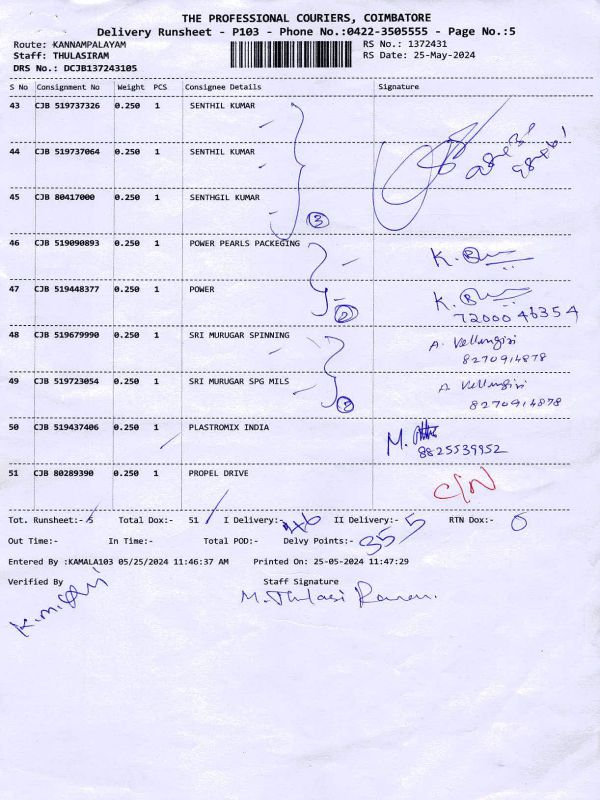 THE PROFESSIONAL COURIERS, COIMBATORE
Delivery Runsheet - P103 - Phone No.:0422-3505555 - Page No.:5
Route: KANNAMPALAYAM RS No.: 1372431
Staff: THULASIRAM RS Date: 25-May-2024
DRS No.: DCJB137243105
S No Consignment No Weight PCS Consignee Details Signature
43 CJB 519737326 0.250 1 SENTHIL KUMAR
44 CJB 519737064 0.250 1 SENTHIL KUMAR
45 CJB 80417000 0.250 1 SENTHGIL KUMAR
3
46 CJB 519090893 0.250 1 POWER PEARLS PACKEGING K.
47 CJB 519448377 0.250 1 POWER K.
2 72000 46354
48 CJB 519679990 0.250 1 SRI MURUGAR SPINNING A. Vellingiri
8270914878
49 CJB 519723054 0.250 1 SRI MURUGAR SPG MILS A Vellingiri
2 8270914878
50 CJB 519437406 0.250 1 PLASTROMIX INDIA M.
8825539952
51 CJB 80289390 0.250 1 PROPEL DRIVE C/N
Tot. Runsheet:- 5 Total Dox:- 51 I Delivery:- 46 II Delivery:- 5 RTN Dox:- 0
Out Time:- In Time:- Total POD:- Delvy Points:- 35
Entered By :KAMALA103 05/25/2024 11:46:37 AM Printed On: 25-05-2024 11:47:29
Verified By Staff Signature
K.M. M. Thulasi Raman.